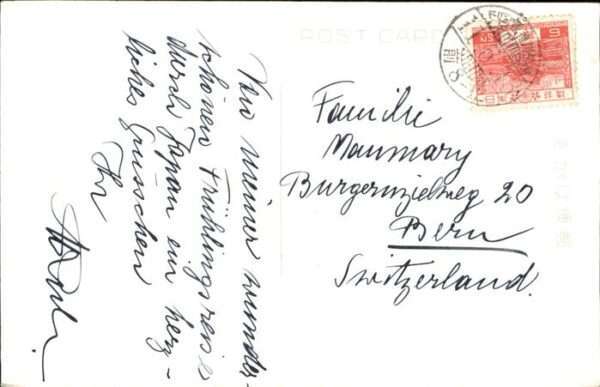 POST CARD
Von meiner wunder-
schönen Frühlingsreise
durch Japan ein herz-
liches Grüsschen
Ihr
Familie
Maumary
Burgernzielweg 20
Bern
Switzerland.